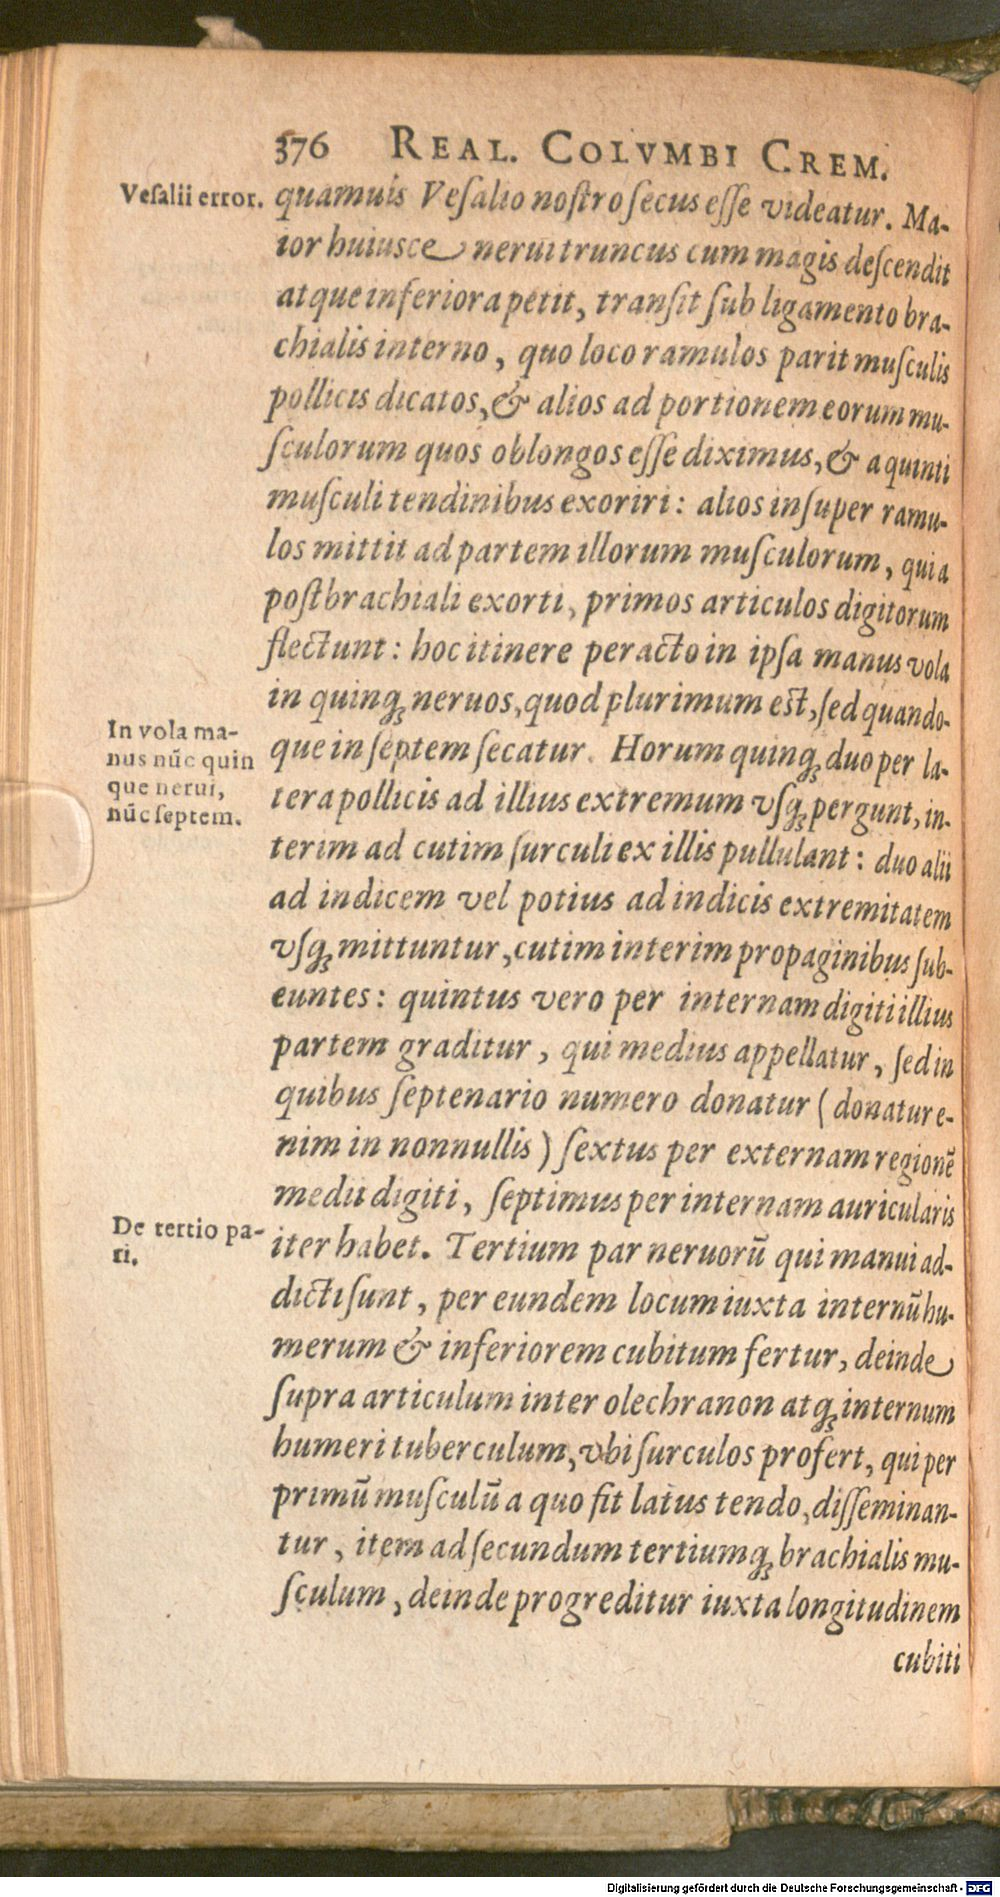 376 REAL. COLVMBI CREM.
Vesalii error.
quamuis Vesalio nostro secus esse videatur. Ma-
ior huiusce nerui truncus cum magis descendit
atque inferiora petit, transit sub ligamento bra-
chialis interno, quo loco ramulos parit musculis
pollicis dicatos, & alios ad portionem eorum mu-
sculorum quos oblongos esse diximus, & a quinti
musculi tendinibus exoriri: alios insuper ramu-
los mittit ad partem illorum musculorum, qui a
postbrachiali exorti, primos articulos digitorum
flectunt: hoc itinere peracto in ipsa manus vola
in quinq; neruos, quod plurimum est, sed quando-
In vola ma-
nus nūc quin
que nerui,
nūc septem.
que in septem secatur. Horum quinq; duo per la-
tera pollicis ad illius extremum vsq; pergunt, in-
terim ad cutim surculi ex illis pullulant: duo alii
ad indicem vel potius ad indicis extremitatem
vsq; mittuntur, cutim interim propaginibus sub-
euntes: quintus vero per internam digiti illius
partem graditur, qui medius appellatur, sed in
quibus septenario numero donatur (donatur e-
nim in nonnullis) sextus per externam regionē
medii digiti, septimus per internam auricularis
De tertio pa-
ri.
iter habet. Tertium par neruorū qui manui ad-
dicti sunt, per eundem locum iuxta internū hu-
merum & inferiorem cubitum fertur, deinde
supra articulum inter olechranon atq; internum
humeri tuberculum, vbi surculos profert, qui per
primū musculū a quo fit latus tendo, disseminan-
tur, item ad secundum tertiumq; brachialis mu-
sculum, deinde progreditur iuxta longitudinem
cubiti
Digitalisierung gefördert durch die Deutsche Forschungsgemeinschaft - DFG